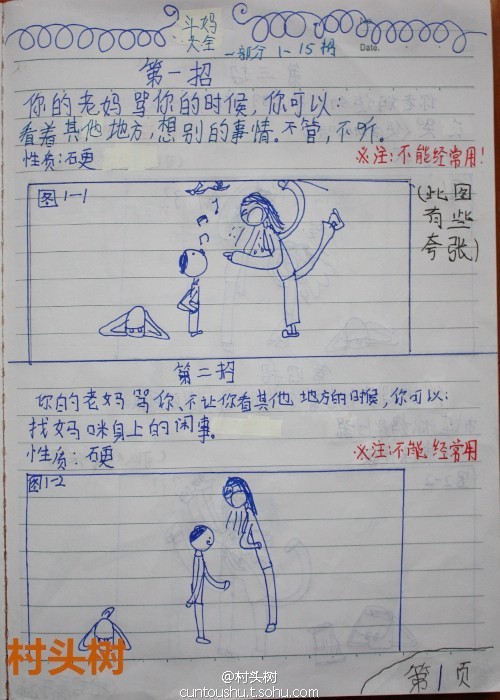 斗妈
大全
一部分 1-15招
Date.
第一招
你的老妈骂你的时候,你可以:
看着其他地方,想别的事情。不管,不听。
性质:硬
※注:不能经常用!
图1-1
(此图
有些
夸张)
第二招
你的老妈骂你、不让你看其他地方的时候,你可以:
找妈咪身上的闲事。
性质:硬
※注:不能经常用
图1-2
村头树
第1页
@村头树
cuntoushu.t.sohu.com